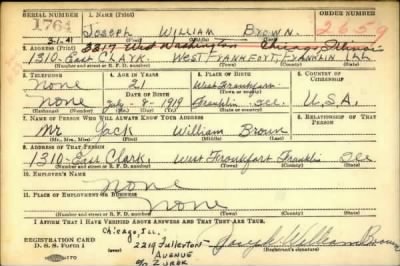 SERIAL NUMBER 1. NAME (Print) ORDER NUMBER
1764 JOSEPH WILLIAM BROWN. 2659
(First) (Middle) (Last)
3317 West Washington Chicago, Illinois
2. ADDRESS (Print)
1310- East CLARK. WEST FRANKFORT, FRANKLIN ILL
(Number and street or R. F. D. number) (Town) (County) (State)
3. TELEPHONE 4. AGE IN YEARS 5. PLACE OF BIRTH 6. COUNTRY OF CITIZENSHIP
None 21 West Frankfort
DATE OF BIRTH
none July - 8 - 1919 Franklin Ill. U.S.A.
(Exchange) (Number) (Mo.) (Day) (Yr.) (State or country)
7. NAME OF PERSON WHO WILL ALWAYS KNOW YOUR ADDRESS 8. RELATIONSHIP OF THAT PERSON
Mr Jack William Brown
(Mr., Mrs., Miss) (First) (Middle) (Last)
9. ADDRESS OF THAT PERSON
1310- East Clark. West Frankfort Franklin Ill
(Number and street or R. F. D. number) (Town) (County) (State)
10. EMPLOYER'S NAME
none
11. PLACE OF EMPLOYMENT OR BUSINESS
None none
(Number and street or R. F. D. number) (Town) (County) (State)
I AFFIRM THAT I HAVE VERIFIED ABOVE ANSWERS AND THAT THEY ARE TRUE.
Chicago, Ill.
REGISTRATION CARD 2219 Fullerton Joseph William Brown
D. S. S. Form 1 AVENUE (Registrant's signature)